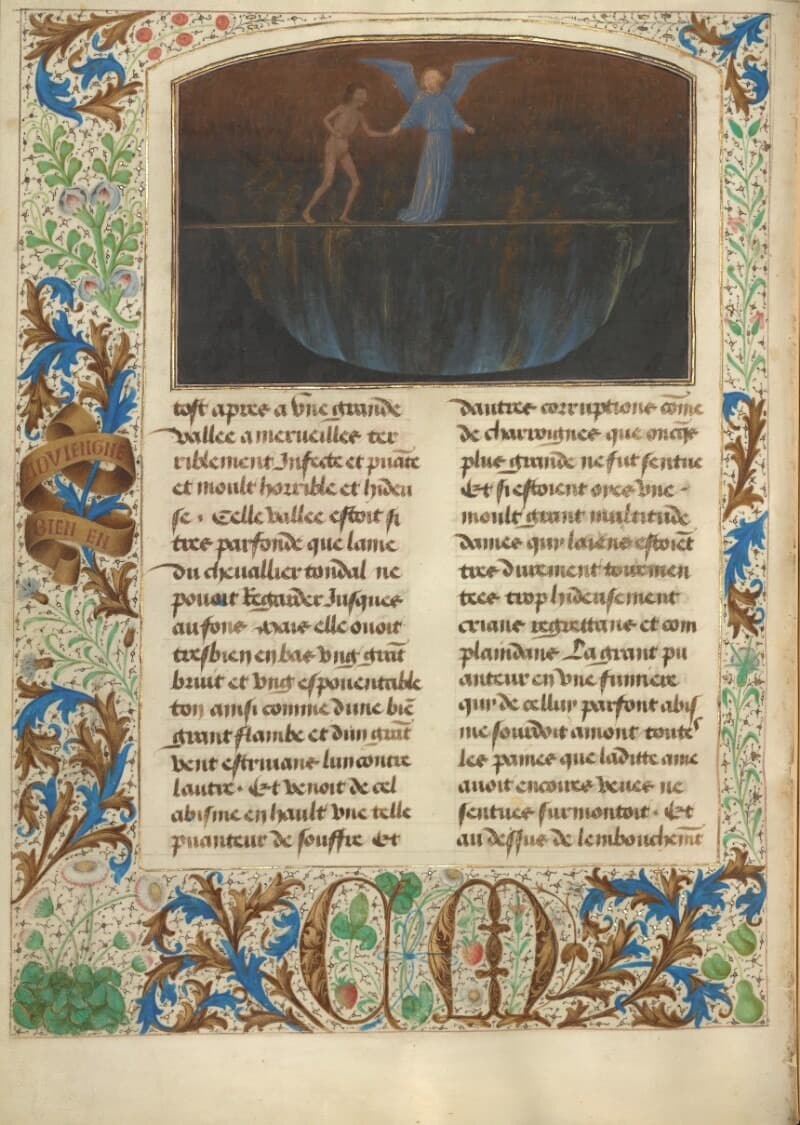 tost apres a vne grande
vallee a merueilles ter
riblement Infecte et puāte
et moult horrible et hideu
se. Celle vallee estoit si
tres parfonde que lame
du cheuallier tondal ne
pouoit Regarder Jusques
au fons Mais elle ouoit
tresbien en bas vng grāt
bruit et vng espouentable
ton ainsi comme dune biē
grant flambe et dun grāt
vent estriuans lun contre
lautre. Et venoit de cel
abisme en hault vne telle
puanteur de souffre Et
dautres corruptions cōme
de charoignes que oncq̄s
plus grande ne fut sentue
Et si estoient ores vne
moult grant multitude
dames qui laiens estoiēt
tres durement tourmen
tees trop hideusement
crians regrettans et com
plaindans La grant pu
anteur en vne fumiere
qui de cellui parfont abis
me sourdoit amont toutes
les paines que laditte ame
auoit encoures veues ne
sentues surmontoit. Et
au dessus de lembouchemēt
ADVIENGNE
BIEN EN
C M